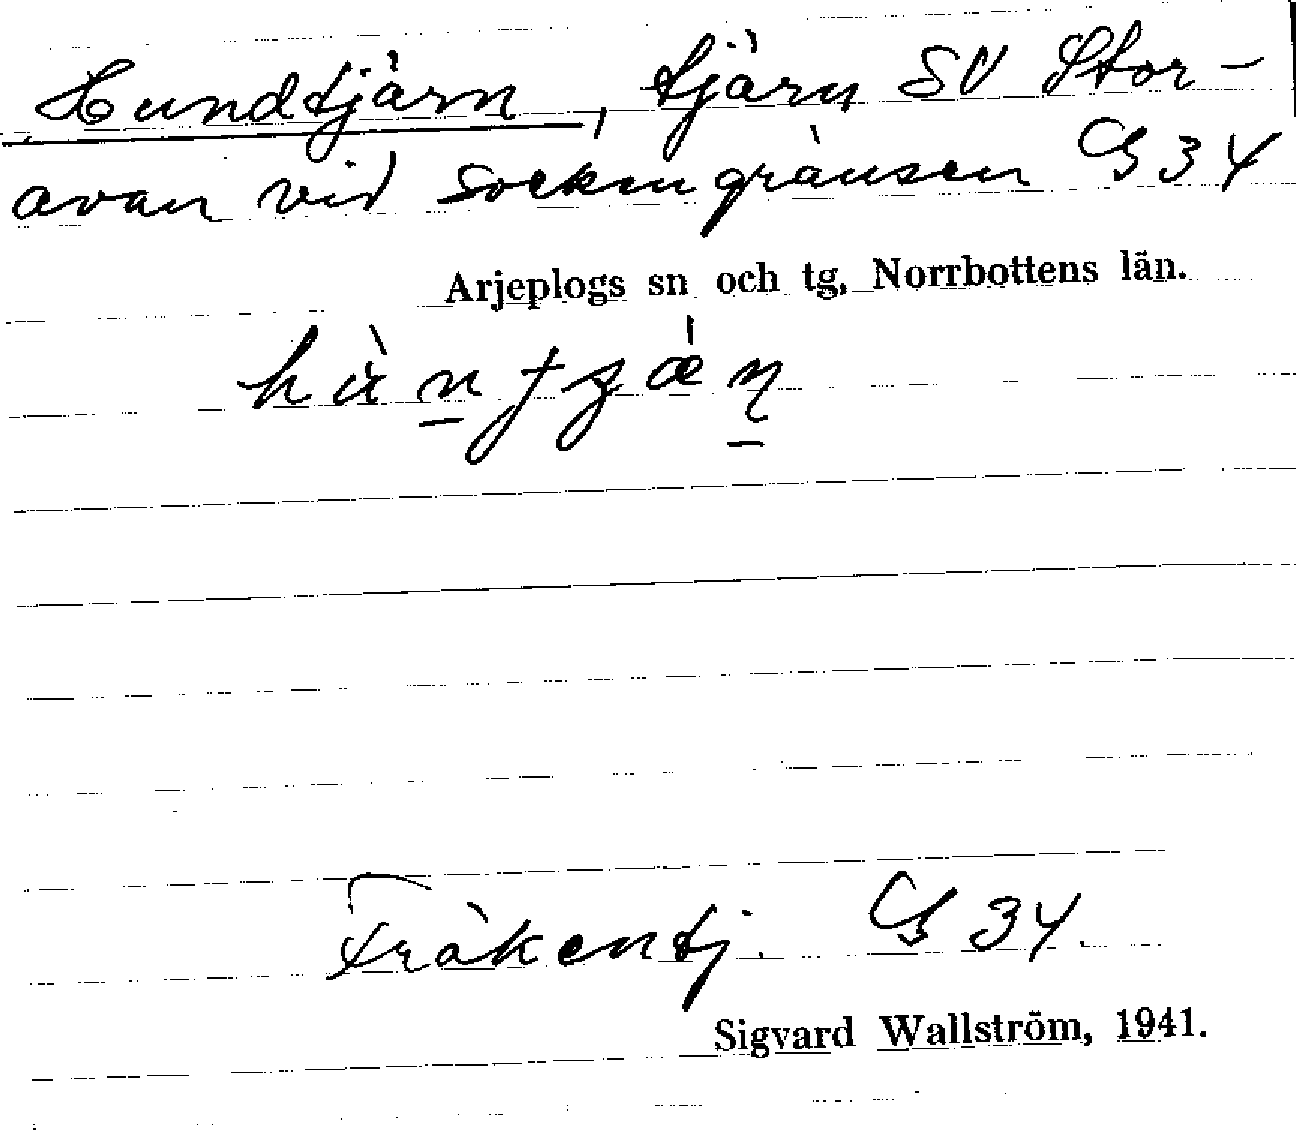 Hundtjärn, tjärn SV Stor-
avan vid sockengränsen G 34
Arjeplogs sn och tg, Norrbottens län.
Fräkentj. G 34.
Sigvard Wallström, 1941.